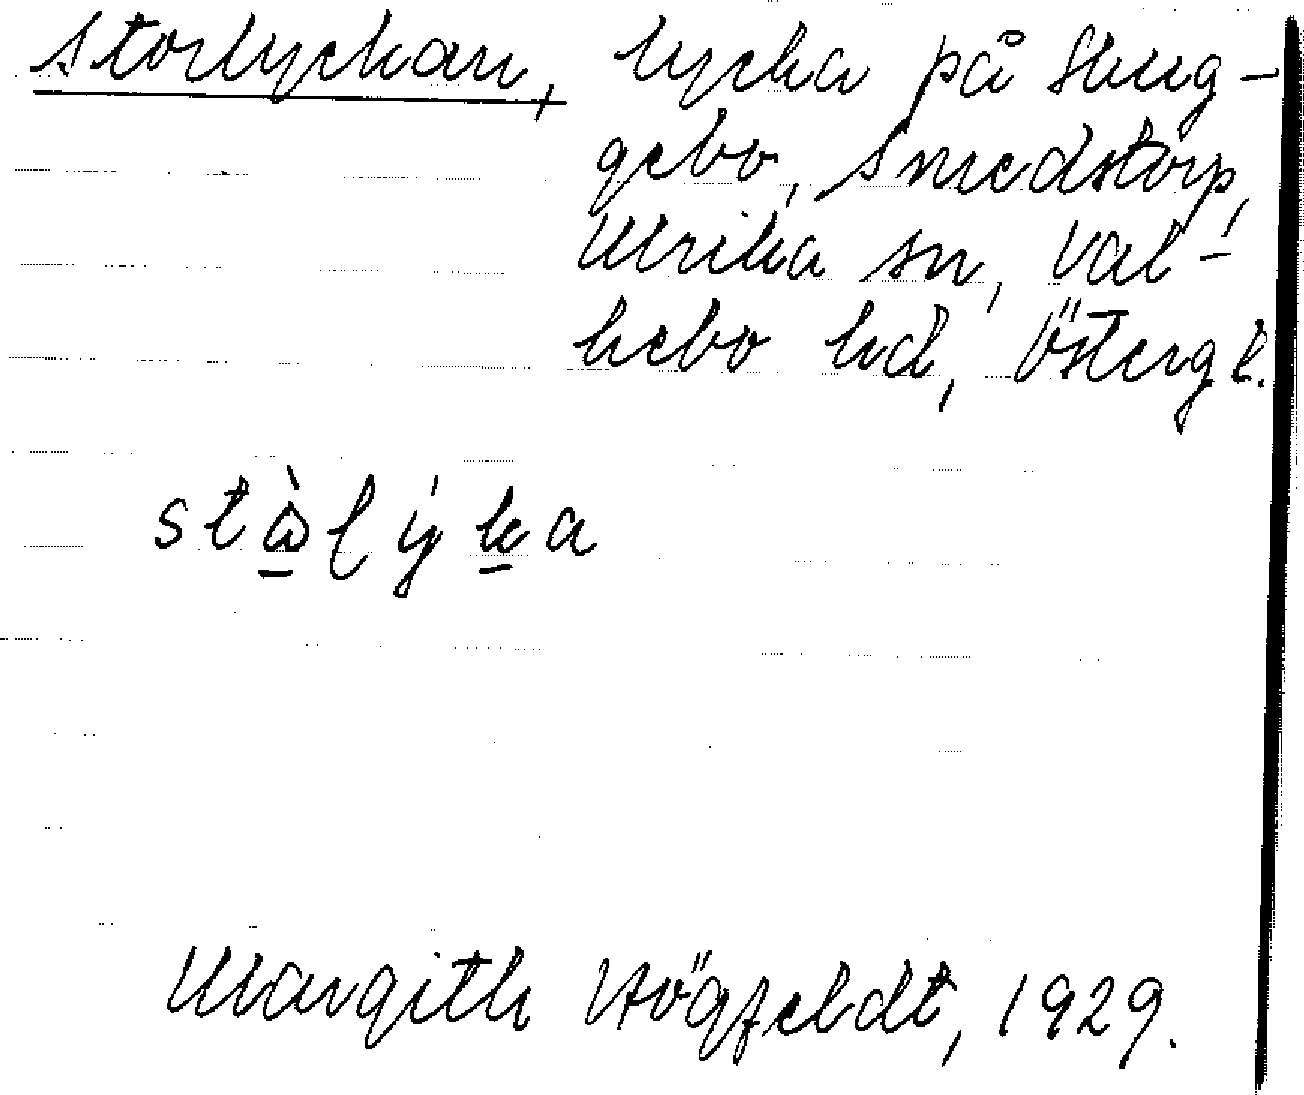 Storlyckan, lycka på Skug-
gebo, Smedstorp,
Ulrika sn, Val-
kebo hd, Östergl.
stòlýka
Margith Högfeldt, 1929.